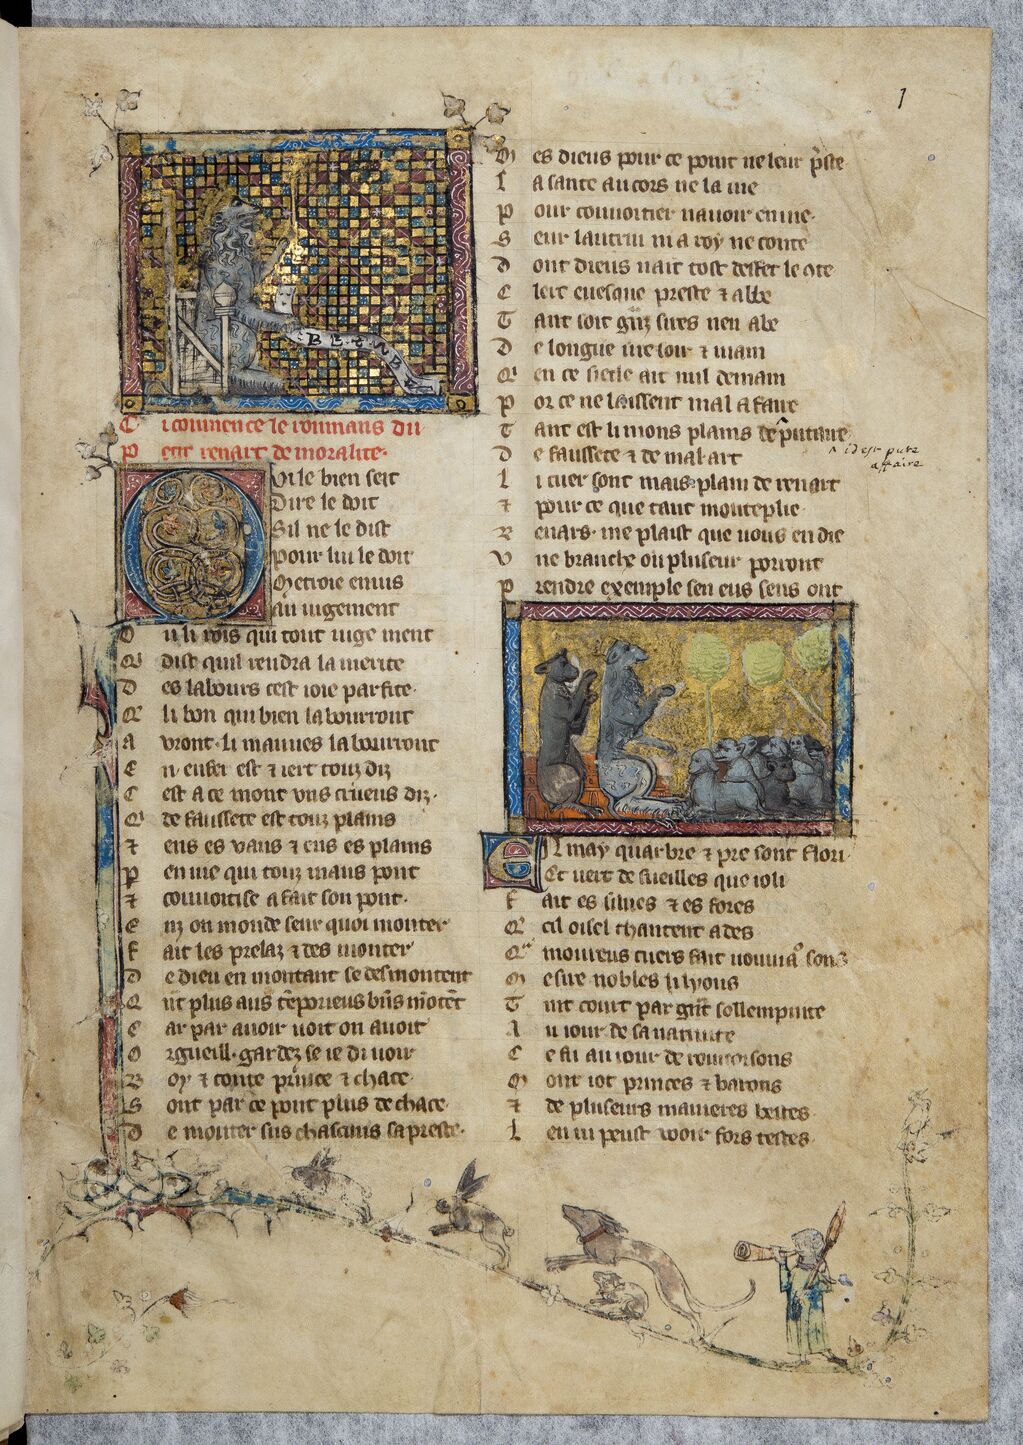 1
C i commence le roumans du
P etit renart de moralite.
Qui le bien seit
Dire le doit
Sil ne le dist
Pour lui le doit
Metroie enuis
au iugement
D u li rois qui tout iuge ment
Q dist quil rendra la merite
D es labours cest ioie parfite.
Q li bon qui bien labourront
A uront. li mauues labourront
E n enfer est & iert touz diz
C est a ce mont uns diz.
Q de faussete est touz plains
& ens es vaus & ens es plains
P enuie qui touz maus pont
& couuoitise a fait son pont.
E nz ou monde seur quoi monter
F ait les prelaz & des monter
D e dieu en montant se desmontent
Q nt plus aus
C ar par auoir uoit on auoit
O rgueill. gardez se ie di uoir
R oy & conte prince & chace.
S ont par ce pont plus de chace.
D e monter sus chascuns sapreste.
M es dieus pour ce pont ne leur pste
L a sante au cors ne la uie
P our couuoitier nauoir enuie.
S eur lautrui ni a roy ne conte
D ont dieus nait tost deffet le cte
C lerc euesque prestre & abbe
T ant soit gnz sires neu abe
D e longue uie soir & main
Q en ce siecle ait nul demain
P or ce ne laissent mal a faire
T ant est li mons plains de putaire
D e faussete & de mal art
L i cuer sont mais plain de renart
& pour ce que tant monteplie
R enars. me plaist que uous en die
V ne branche ou pluseur porront
P rendre exemple sen eus sens ont
id est pute
affaire
En may quarbre & pre sont flori.
Et uert de fueilles que ioli
F ait es silues & es fores
Q cil oisel chantent ades
Q amoureus cuers fait sons
M esire nobles li lyons
T int court par gnt sollempnite
A u iour de sa natiuite
C e fu au iour de rouuoisons
M ont iot princes & barons
& de pluseurs manieres bestes
L en ni peust ueoir fors testes.